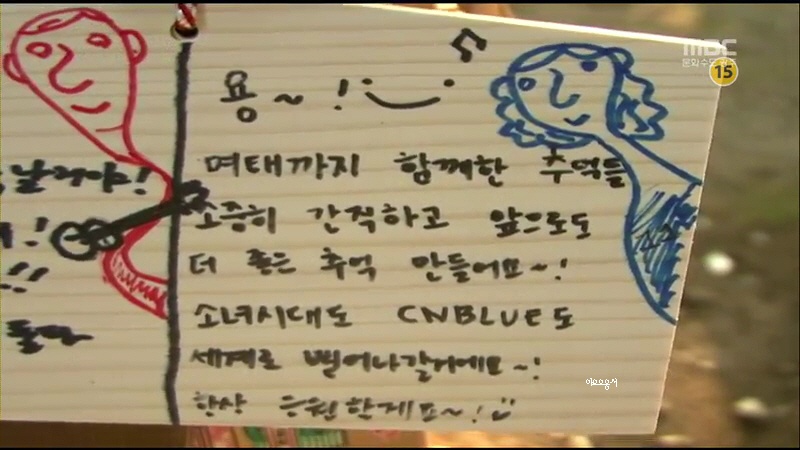 MBC
15
용~!
여태까지 함께한 추억들
소중히 간직하고 앞으로도
더 좋은 추억 만들어요~!
소녀시대도 CNBLUE도
세계로 뻗어나갈거에요~!
항상 응원할게요~!